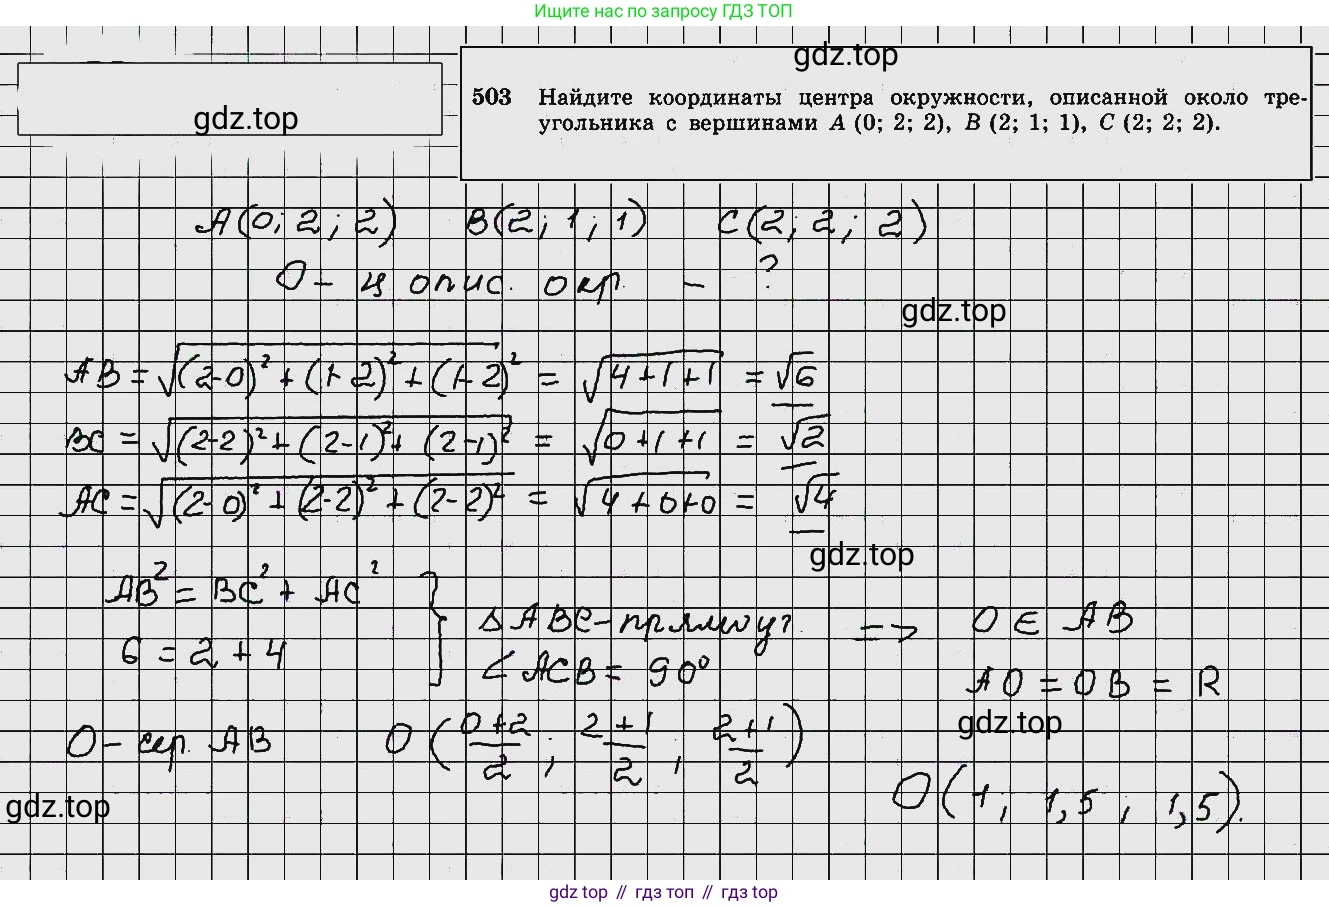 Ищите нас по запросу ГДЗ ТОП
gdz.top
gdz.top
503 Найдите координаты центра окружности, описанной около тре-
угольника с вершинами A (0; 2; 2), B (2; 1; 1), C (2; 2; 2).
A(0; 2; 2) B(2; 1; 1) C(2; 2; 2)
O - ц опис. окр - ?
gdz.top
AB = √((2-0)² + (1-2)² + (1-2)²) = √(4+1+1) = √6
BC = √((2-2)² + (2-1)² + (2-1)²) = √(0+1+1) = √2
AC = √((2-0)² + (2-2)² + (2-2)²) = √(4+0+0) = √4
gdz.top
AB² = BC² + AC²
6 = 2 + 4
} Δ ABC - прямоуг. => O ∈ AB
∠ ACB = 90° AO = OB = R
gdz.top
O - сер. AB O ((0+2)/2 ; (2+1)/2 ; (2+1)/2)
gdz.top
O(1; 1,5; 1,5).
gdz top // гдз топ // гдз top